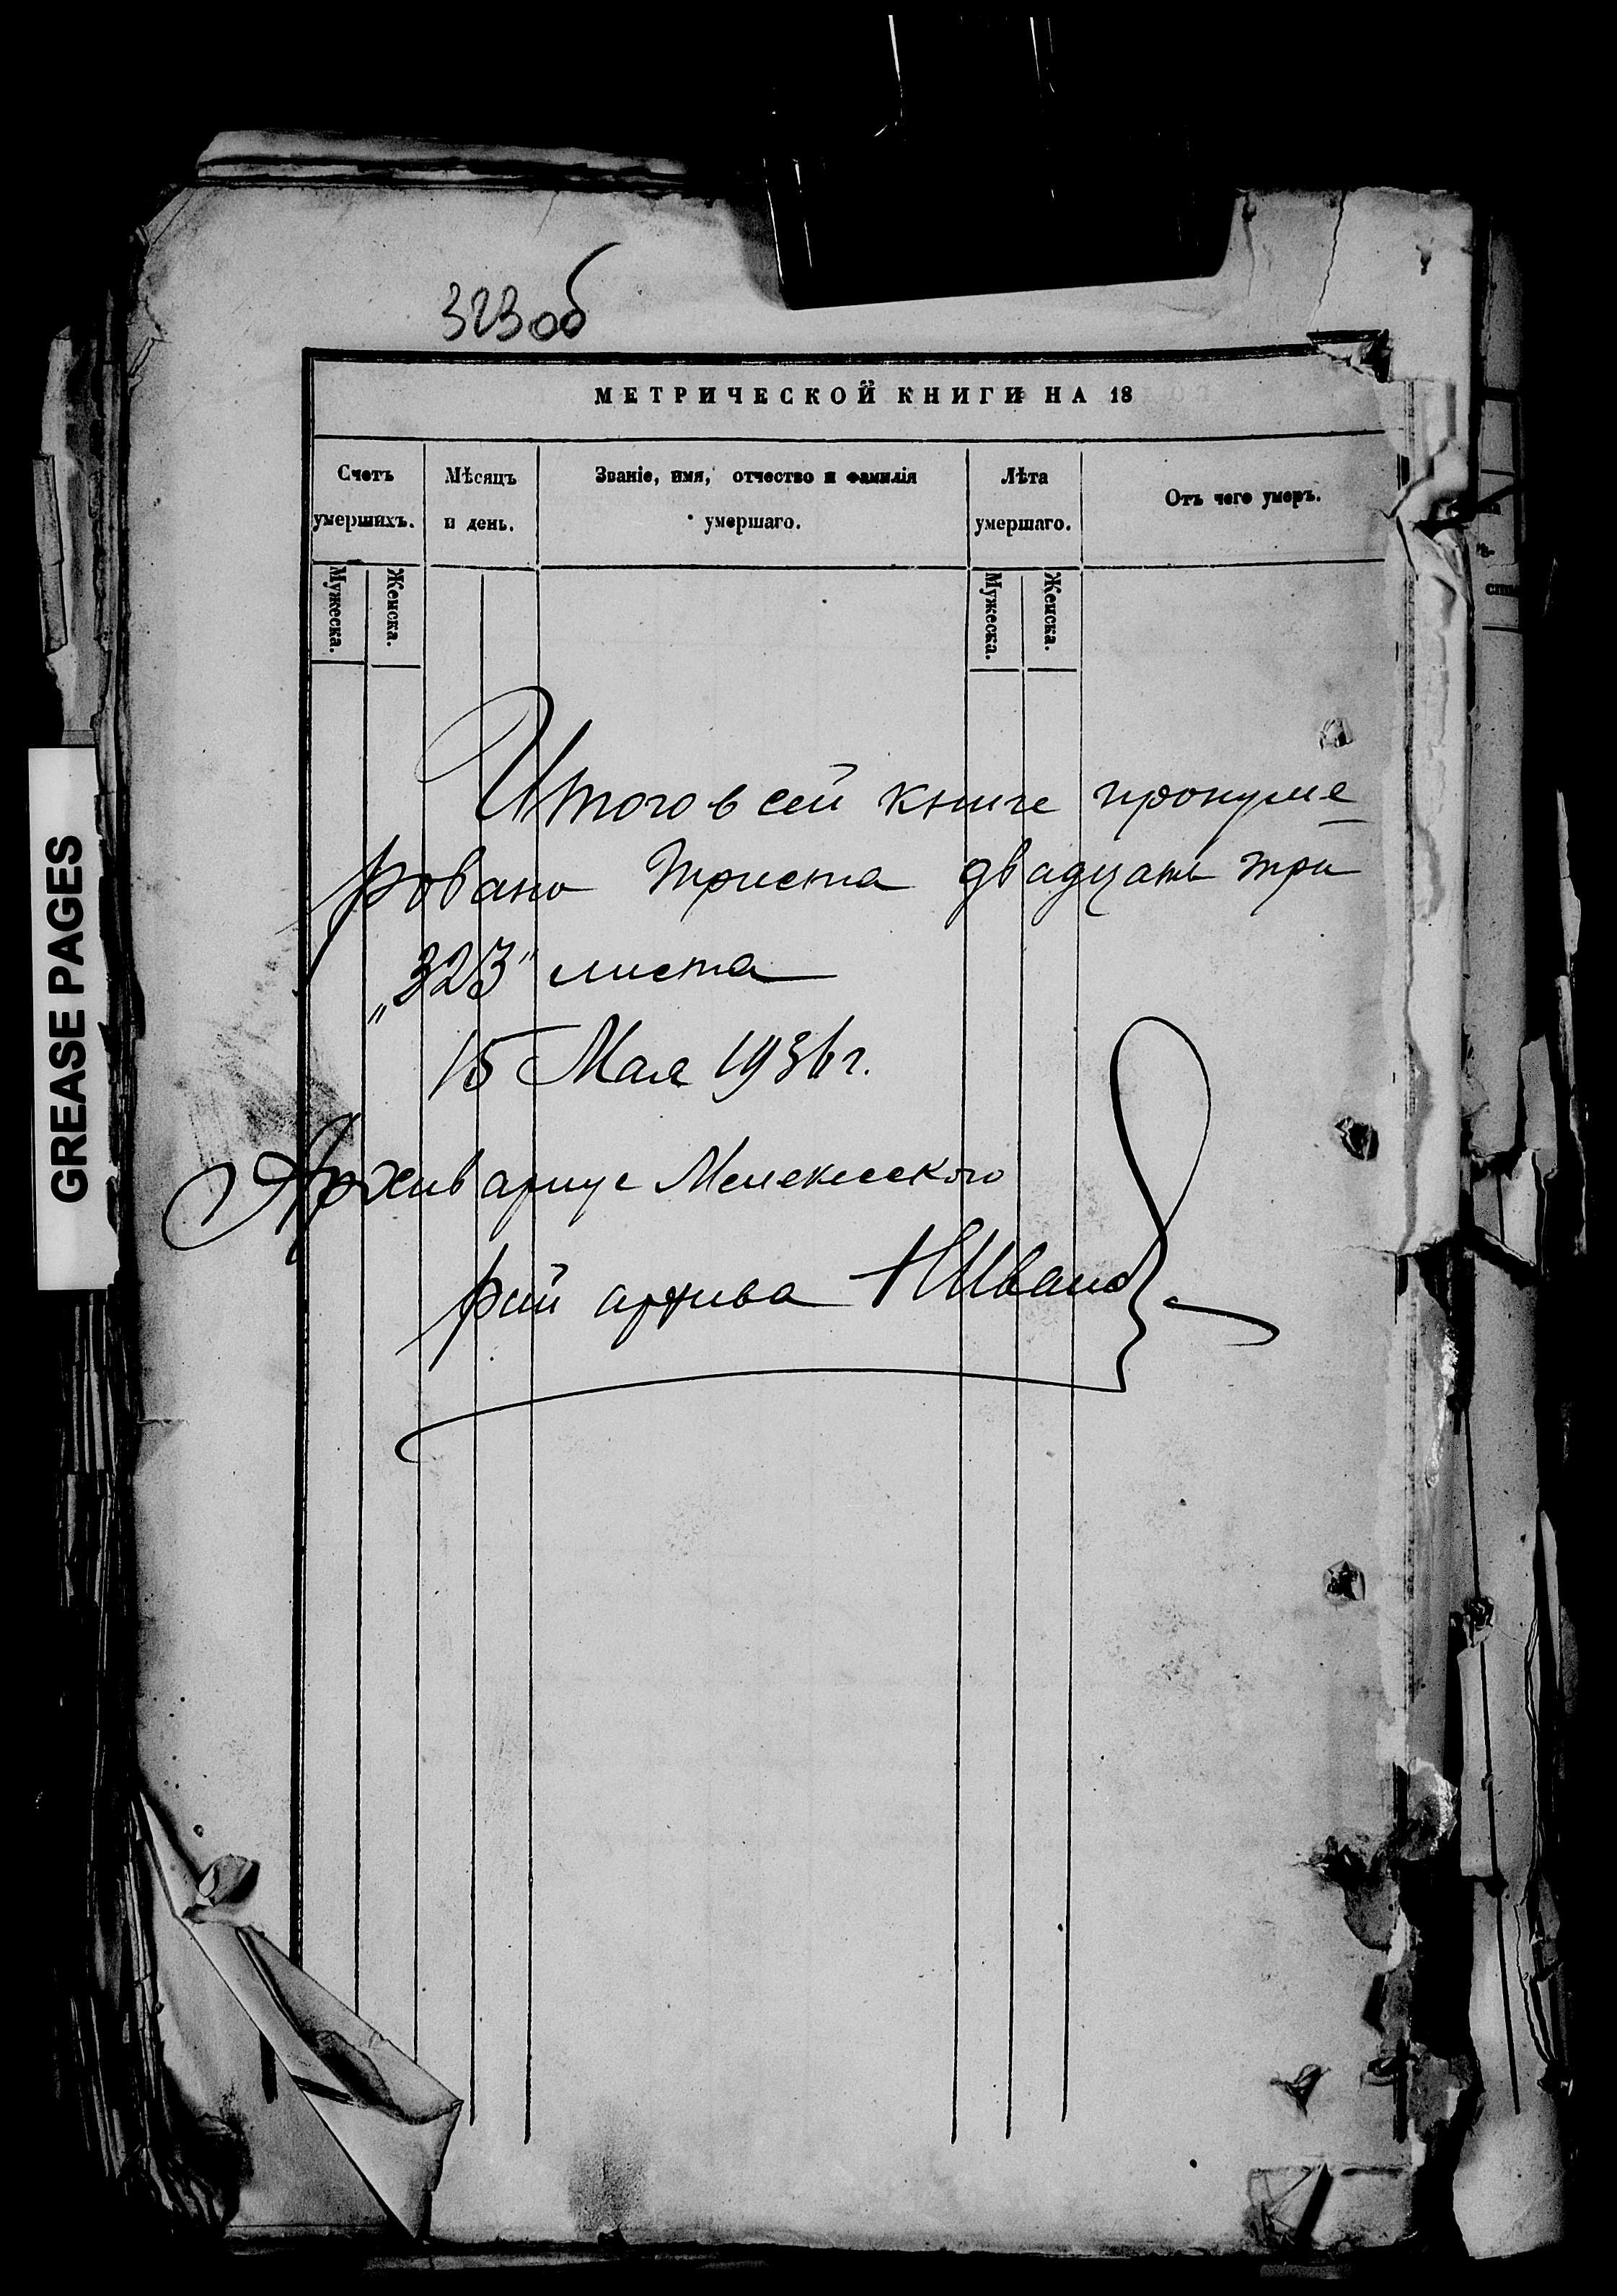 323об
МЕТРИЧЕСКОЙ КНИГИ НА 18
Счетъ умершихъ.
Мѣсяцъ и день.
Званіе, имя, отчество и фамилія умершаго.
Лѣта умершаго.
Отъ чего умеръ.
Мужеска.
Женска.
Мужеска.
Женска.
Итого в сей книге пронуме
ровано триста двадцать три
„323" листа
15 Мая 1936 г.
Архивариус Мелекесского
рай архива НИванов
GREASE PAGES